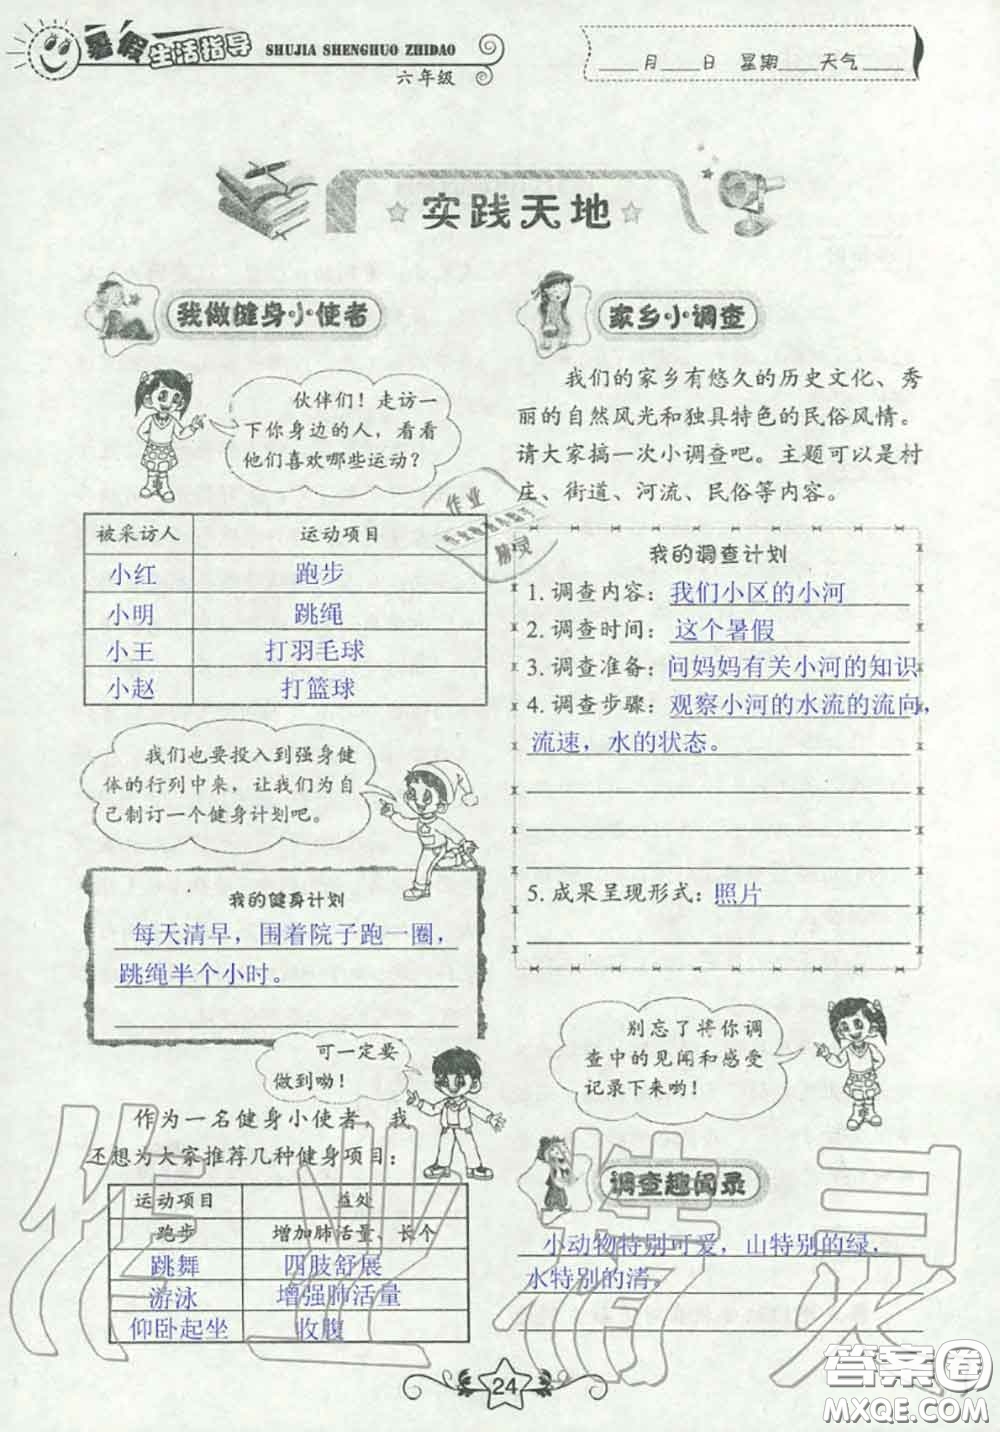 暑假生活指导
SHUJIA SHENGHUO ZHIDAO
六年级
月 日 星期 天气
实践天地
我做健身小使者
伙伴们！走访一
下你身边的人，看看
他们喜欢哪些运动？
被采访人 运动项目
小红 跑步
小明 跳绳
小王 打羽毛球
小赵 打篮球
我们也要投入到强身健
体的行列中来，让我们为自
己制订一个健身计划吧。
我的健身计划
每天清早，围着院子跑一圈，
跳绳半个小时。
可一定要
做到哟！
作为一名健身小使者，我
还想为大家推荐几种健身项目：
运动项目 益处
跑步 增加肺活量、长个
跳舞 四肢舒展
游泳 增强肺活量
仰卧起坐 收腹
家乡小调查
我们的家乡有悠久的历史文化、秀
丽的自然风光和独具特色的民俗风情。
请大家搞一次小调查吧。主题可以是村
庄、街道、河流、民俗等内容。
我的调查计划
1. 调查内容：我们小区的小河
2. 调查时间：这个暑假
3. 调查准备：问妈妈有关小河的知识
4. 调查步骤：观察小河的水流的流向，
流速，水的状态。
5. 成果呈现形式：照片
别忘了将你调
查中的见闻和感受
记录下来哟！
调查趣闻录
小动物特别可爱，山特别的绿，
水特别的清。
24
作业精灵
答案圈
MXQE.COM